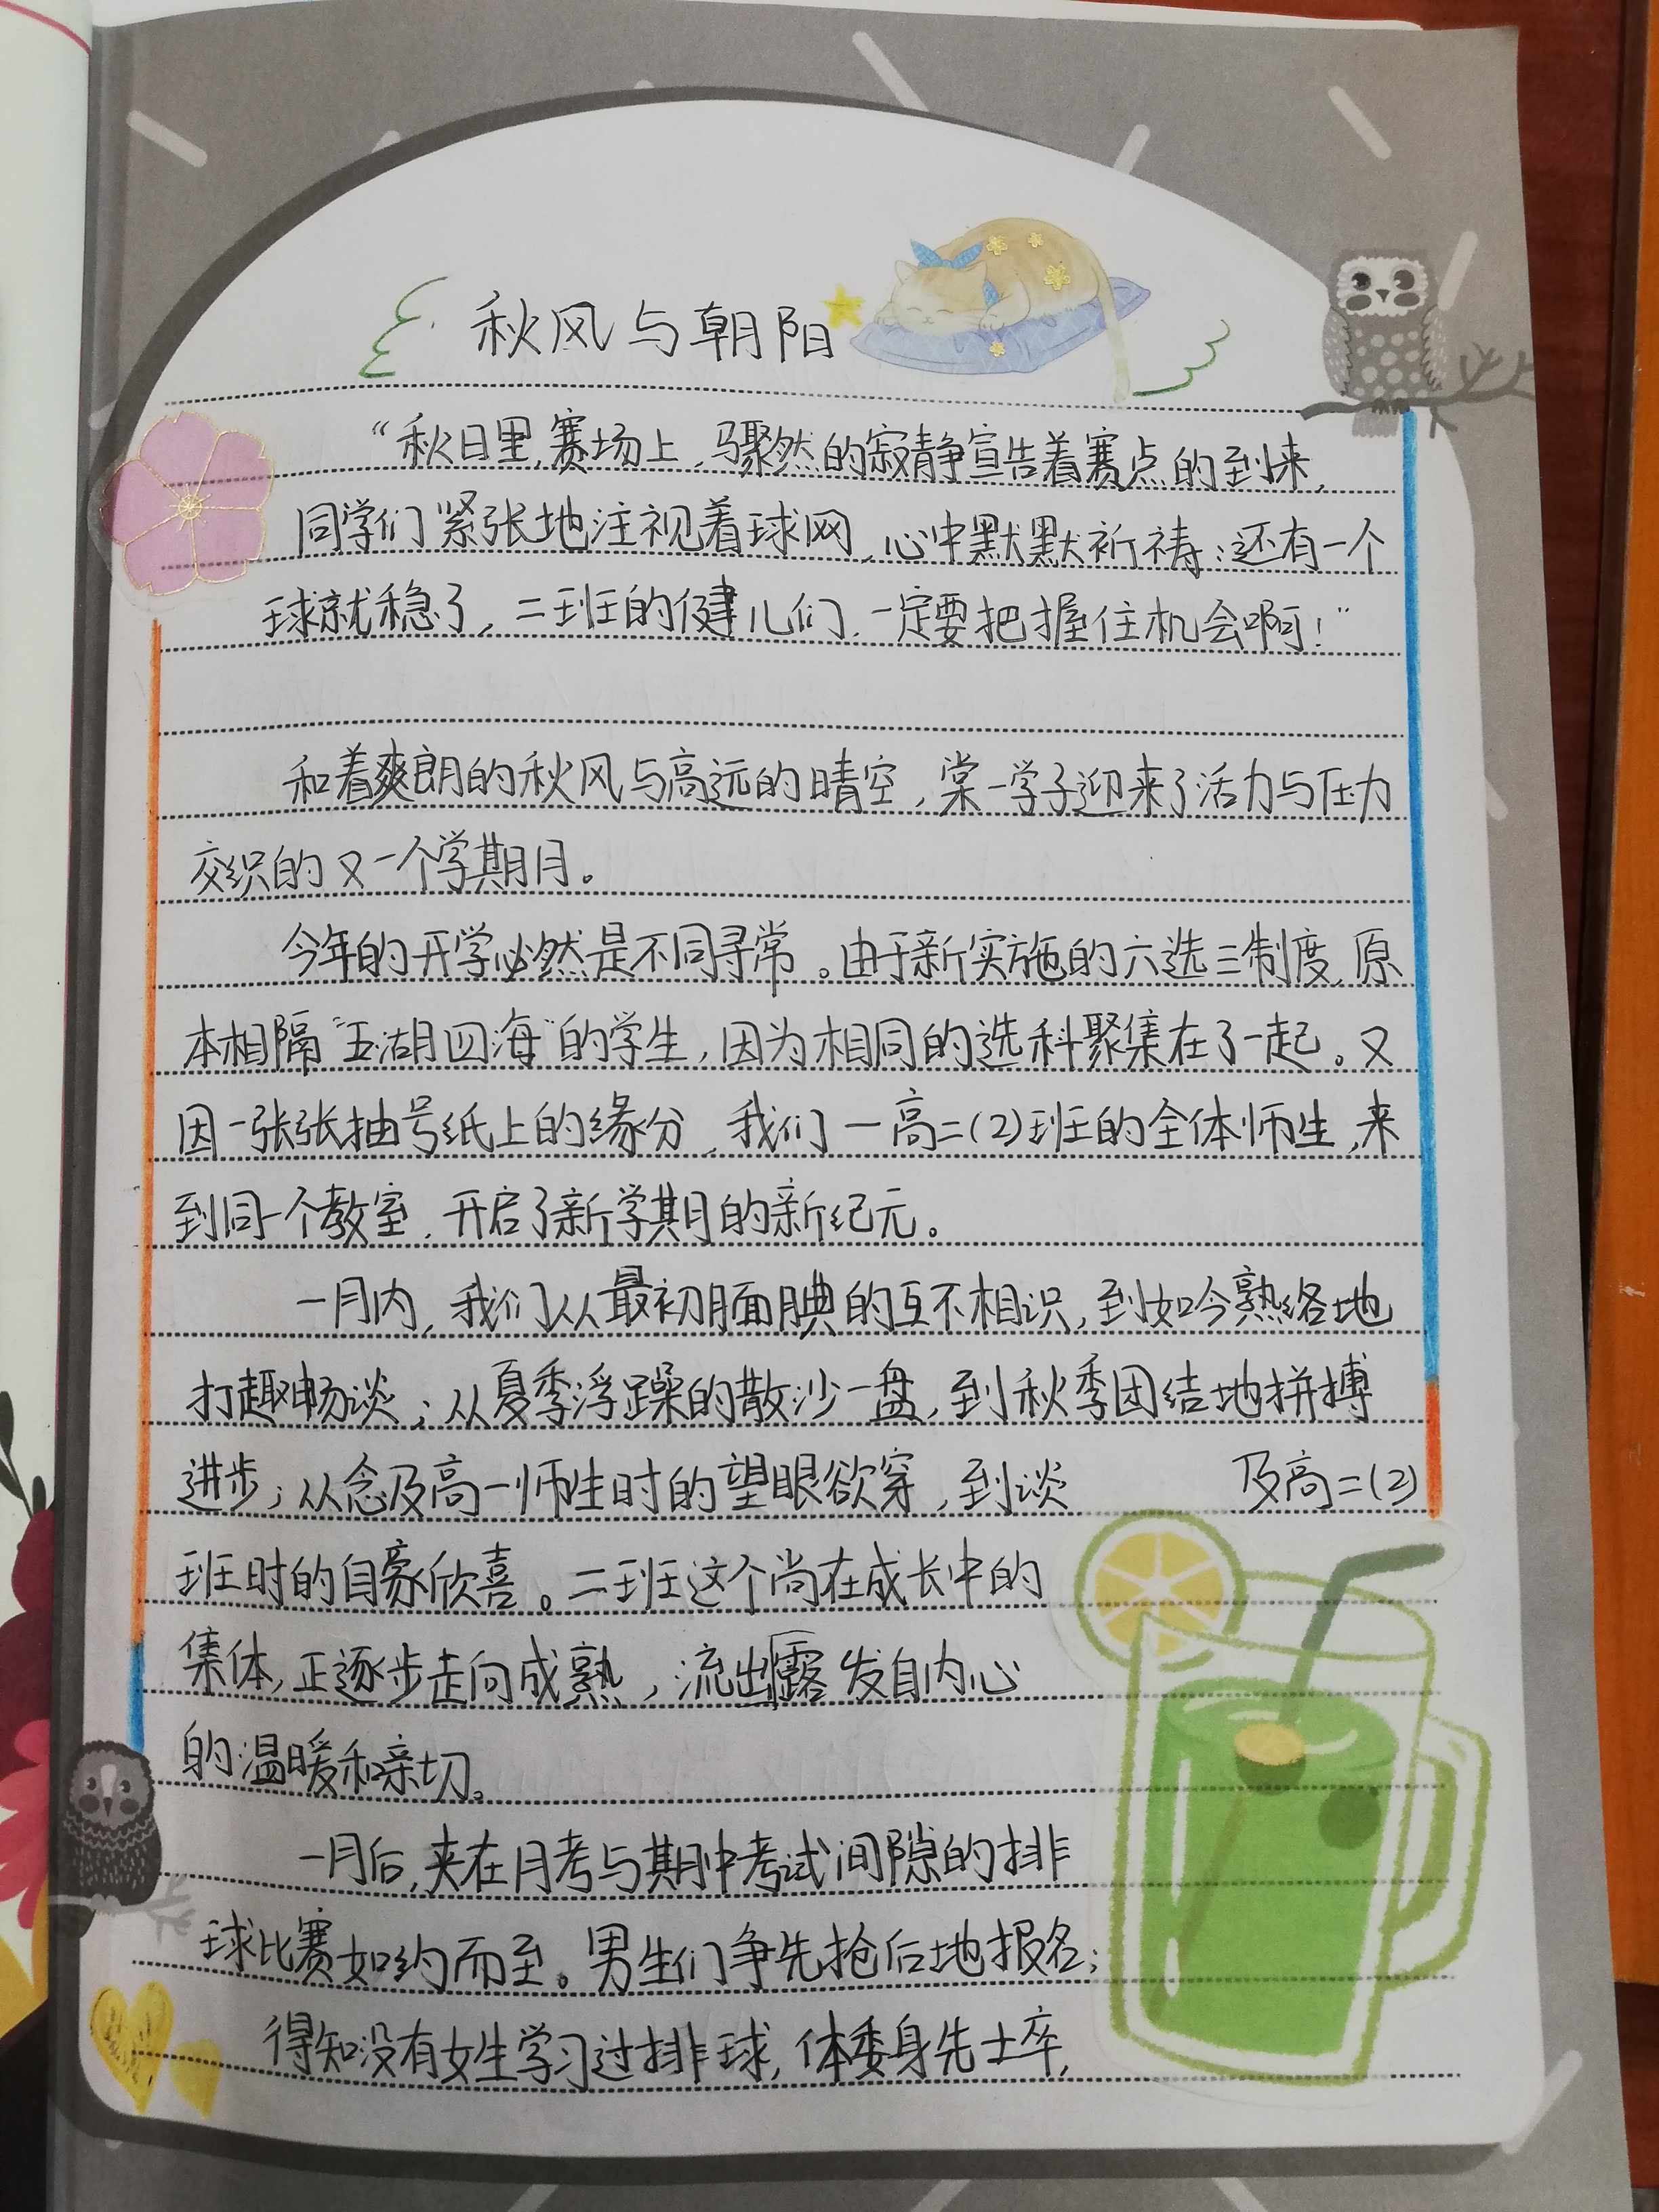 秋风与朝阳
“秋日里,赛场上,骤然的寂静宣告着赛点的到来,
同学们紧张地注视着球网,心中默默祈祷:还有一个
球就稳了,二班的健儿们,一定要把握住机会啊!”
和着爽朗的秋风与高远的晴空,棠一学子迎来了活力与压力
交织的又一个学期月。
今年的开学必然是不同寻常。由于新实施的六选三制度,原
本相隔“五湖四海”的学生,因为相同的选科聚集在了一起。又
因一张张抽号纸上的缘分,我们一高二(2)班的全体师生,来
到同一个教室,开启了新学期的新纪元。
一月内,我们从最初腼腆的互不相识,到如今熟络地
打趣畅谈;从夏季浮躁的散沙一盘,到秋季团结地拼搏
进步;从念及高一师生时的望眼欲穿,到谈 及高二(2)
班时的自豪欣喜。二班这个尚在成长中的
集体,正逐步走向成熟,流出露发自内心
的温暖和亲切。
一月后,夹在月考与期中考试间隙的排
球比赛如约而至。男生们争先抢后地报名;
得知没有女生学习过排球,体委身先士卒,